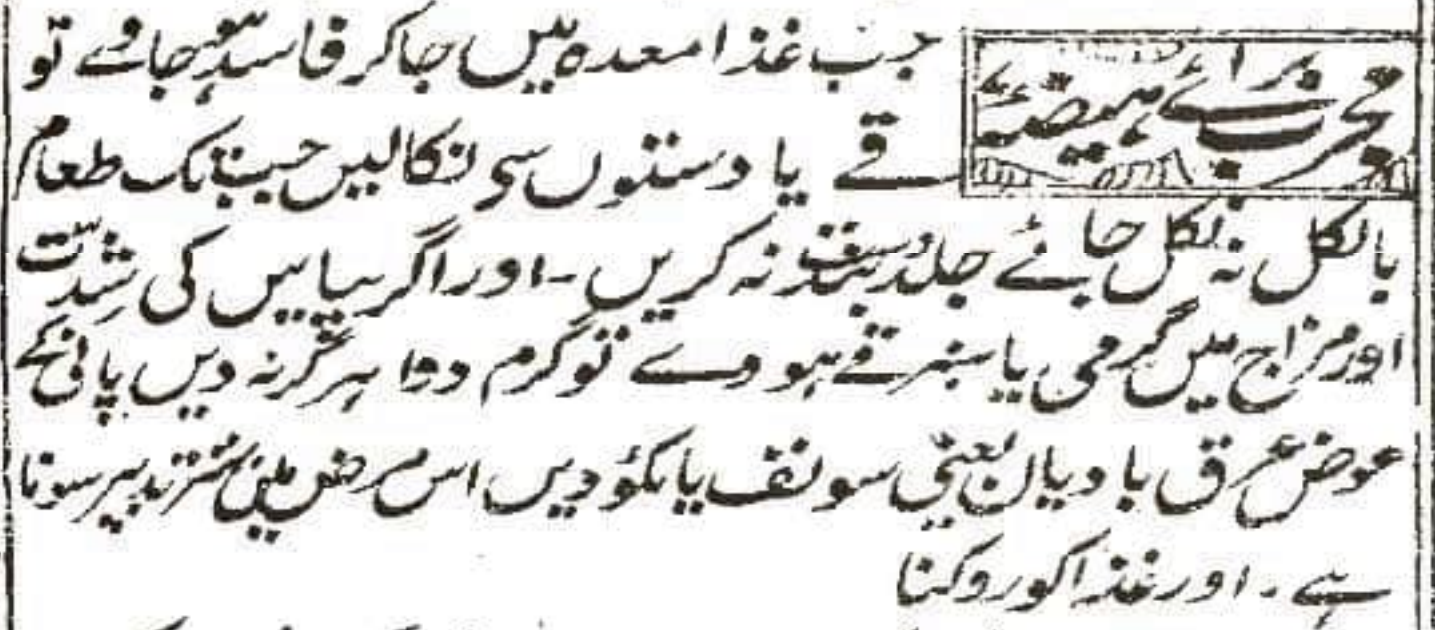 مجرب برائے ہیضہ
جب غذا معدہ میں جاکر فاسد ہوجاوے تو
قے یا دستوں سی نکالیں جب تک طعام
بالکل نہ نکل جائے جلد بند نہ کریں ۔ اور اگر پیاس کی شدّت
اور مزاج میں گرمی یا سبز قے ہووے تو گرم دوا ہرگز نہ دیں پانی کے
عوض عرق بادیان یعنی سونف یا مکؤ دیں اس مرض میں بہتر تدبیر سونا
ہے ۔ اور غذا کو روکنا